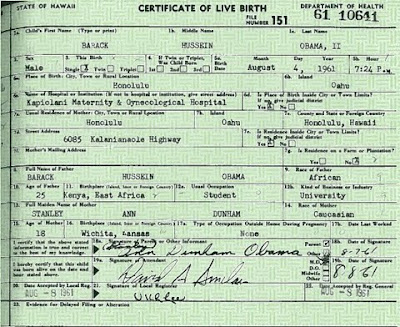 STATE OF HAWAII CERTIFICATE OF LIVE BIRTH DEPARTMENT OF HEALTH
FILE NUMBER 151 61 10641
1a. Child's First Name (Type or print) 1b. Middle Name 1c. Last Name
BARACK HUSSEIN OBAMA, II
2. Sex 3. This Birth 4. If Twin or Triplet, Was Child Born 5a. Birth Date Month Day Year 5b. Hour
Male Single Twin Triplet 1st 2nd 3rd August 4, 1961 7:24 P.M.
6a. Place of Birth: City, Town or Rural Location 6b. Island
Honolulu Oahu
6c. Name of Hospital or Institution (If not in hospital or institution, give street address) 6d. Is Place of Birth Inside City or Town Limits? If no, give judicial district
Kapiolani Maternity & Gynecological Hospital Yes No
7a. Usual Residence of Mother: City, Town or Rural Location 7b. Island 7c. County and State or Foreign Country
Honolulu Oahu Honolulu, Hawaii
7d. Street Address 7e. Is Residence Inside City or Town Limits? If no, give judicial district
6085 Kalanianaole Highway Yes No
7f. Mother's Mailing Address 7g. Is Residence on a Farm or Plantation?
Yes No
8. Full Name of Father 9. Race of Father
BARACK HUSSEIN OBAMA African
10. Age of Father 11. Birthplace (Island, State or Foreign Country) 12a. Usual Occupation 12b. Kind of Business or Industry
Kenya, East Africa Student University
13. Full Maiden Name of Mother 14. Race of Mother
STANLEY ANN DUNHAM Caucasian
15. Age of Mother 16. Birthplace (Island, State or Foreign Country) 17a. Type of Occupation Outside Home During Pregnancy 17b. Date Last Worked
18 Wichita, Kansas None
I certify that the above stated information is true and correct to the best of my knowledge. 18a. Signature of Parent or Other Informant Parent Other 18b. Date of Signature
Ann Dunham Obama 8-7-61
I hereby certify that this child was born alive on the date and hour stated above. 19a. Signature of Attendant M.D. D.O. Midwife Other 19b. Date of Signature
David A Sinclair 8 8 61
20. Date Accepted by Local Reg. 21. Signature of Local Registrar 22. Date Accepted by Reg. General
AUG -8 1961 U K L Lee AUG -8 1961
23. Evidence for Delayed Filing or Alteration